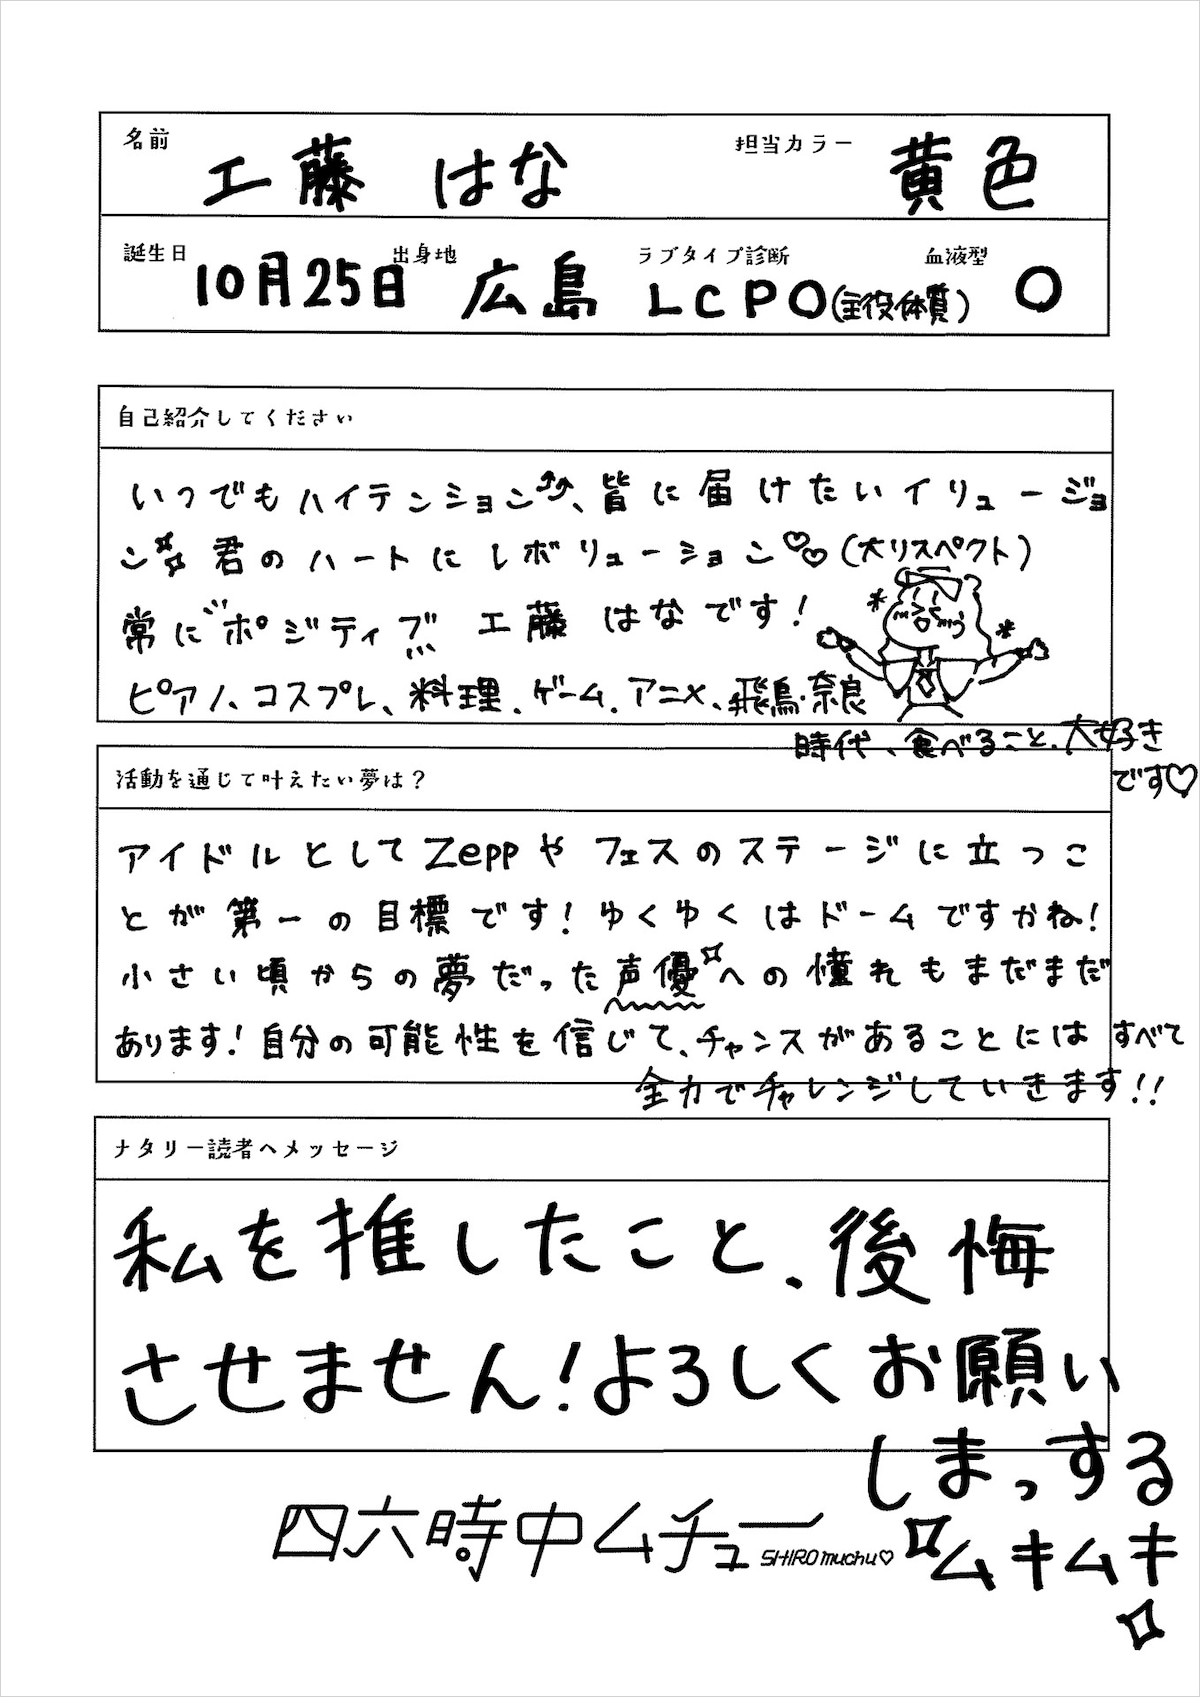 名前 工藤 はな 担当カラー 黄色
誕生日 10月25日 出身地 広島 ラブタイプ診断 LCPO(主役体質) 血液型 O
自己紹介してください
いつでもハイテンション⤴⤴、皆に届けたいイリュージョ
ン 君のハートにレボリューション♡♡(大リスペクト)
常に"ポジティブ" 工藤 はなです!
ピアノ、コスプレ、料理、ゲーム、アニメ、飛鳥・奈良
時代、食べること、大好き
です♡
活動を通じて叶えたい夢は?
アイドルとしてZeppやフェスのステージに立つこ
とが第一の目標です!ゆくゆくはドームですかね!
小さい頃からの夢だった声優への憧れもまだまだ
あります!自分の可能性を信じて、チャンスがあることにはすべて
全力でチャレンジしていきます!!
ナタリー読者へメッセージ
私を推したこと、後悔
させません!よろしくお願い
しまっする
ムキムキ
四六時中ムチュー SHIROmuchu♡